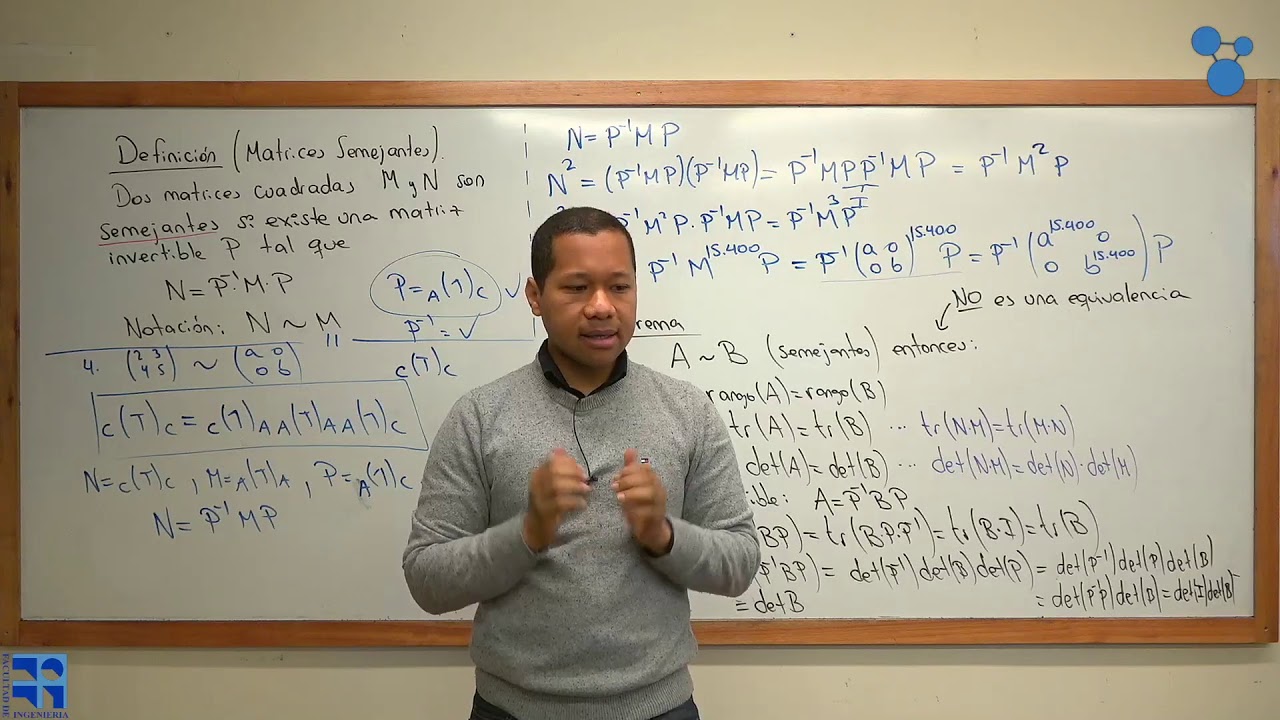 Definición (Matrices Semejantes).
Dos matrices cuadradas M y N son
semejantes si existe una matriz
invertible P tal que
N = P⁻¹·M·P
Notación: N ~ M
P = A(T)C ✓
P⁻¹ = ✓
4. (2 3; 4 5) ~ (a 0; 0 b)
C(T)C
C(T)C = C(T)A A(T)A A(T)C
N = C(T)C , M = A(T)A , P = A(T)C
N = P⁻¹MP
N = P⁻¹MP
N² = (P⁻¹MP)(P⁻¹MP) = P⁻¹MPP⁻¹MP = P⁻¹M²P
I
P⁻¹M²P·P⁻¹MP = P⁻¹M³P
P⁻¹M¹⁵·⁴⁰⁰P = P⁻¹(a 0; 0 b)¹⁵·⁴⁰⁰P = P⁻¹(a¹⁵·⁴⁰⁰ 0; 0 b¹⁵·⁴⁰⁰)P
NO es una equivalencia
A ~ B (semejantes) entonces:
rango(A) = rango(B)
tr(A) = tr(B) ... tr(N·M) = tr(M·N)
det(A) = det(B) ... det(N·M) = det(N)·det(M)
A = P⁻¹BP
BP) = tr(B·P·P⁻¹) = tr(B·I) = tr(B)
P⁻¹BP) = det(P⁻¹)det(B)det(P) = det(P⁻¹)det(P)det(B)
= det B
= det(P⁻¹P)det(B) = det(I)det(B)
FACULTAD DE
INGENIERIA